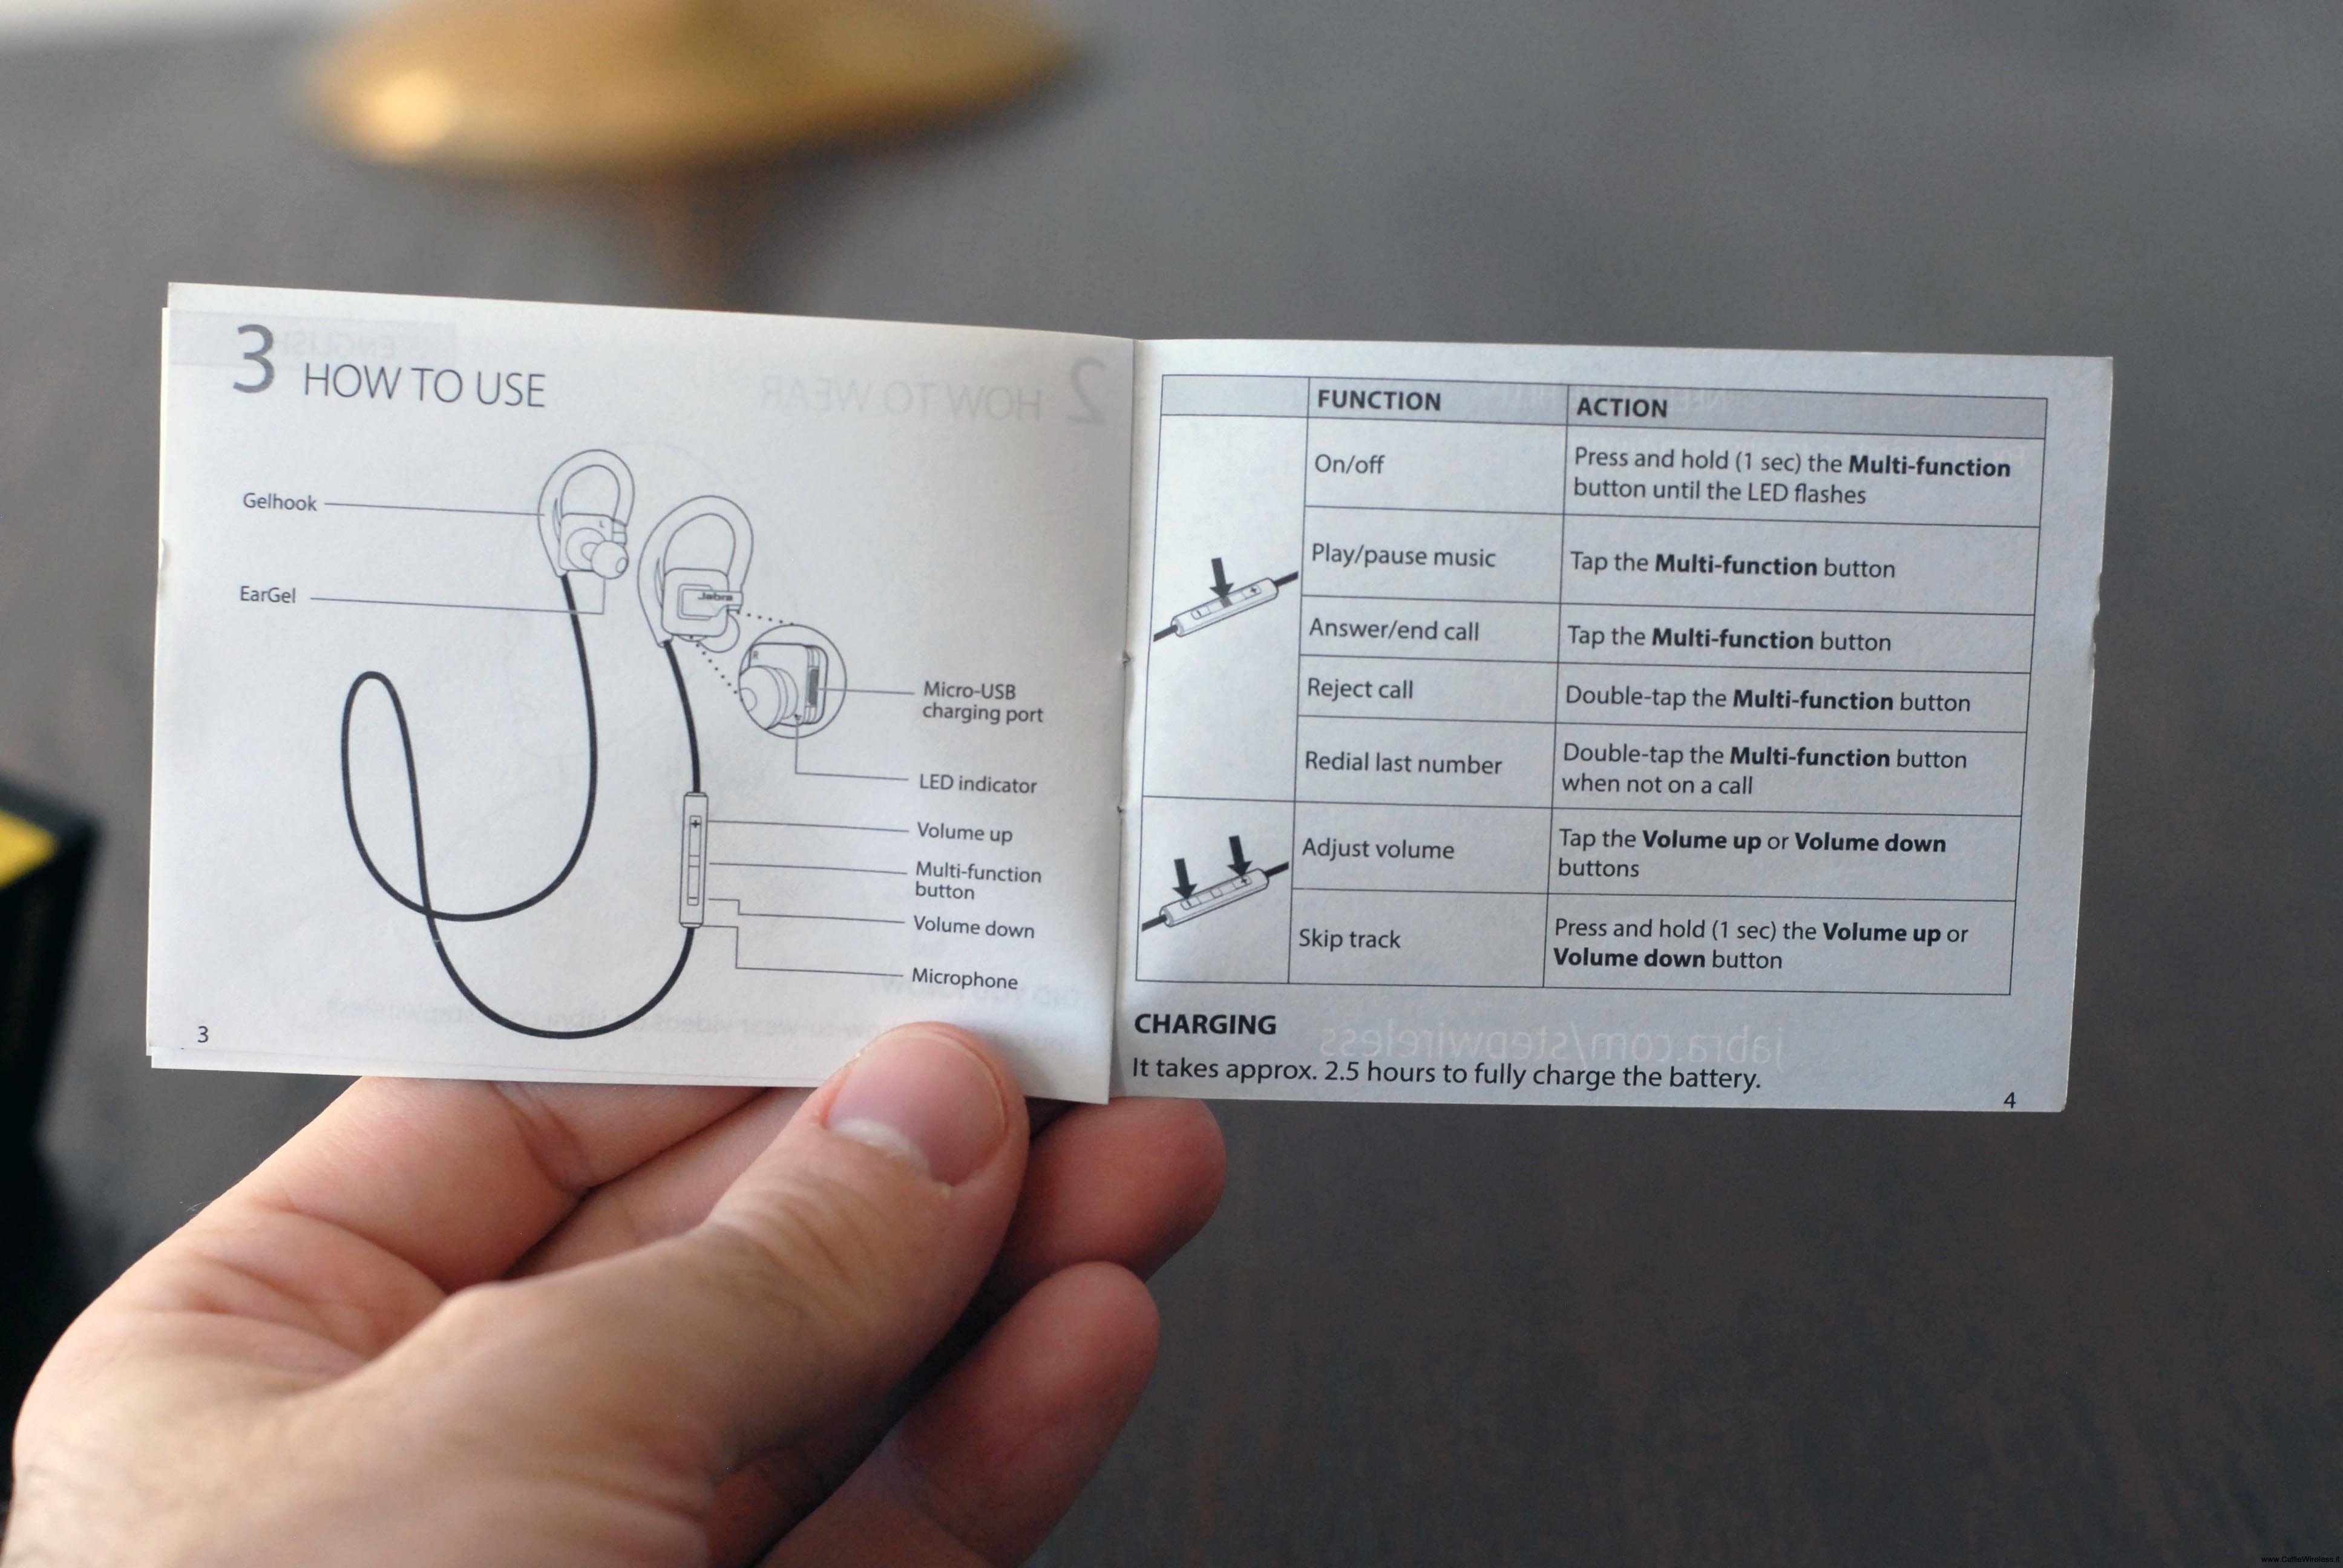 3 HOW TO USE
Gelhook
EarGel
L
Jabra
R
Micro-USB
charging port
LED indicator
Volume up
Multi-function
button
Volume down
Microphone
3
FUNCTION
ACTION
On/off
Press and hold (1 sec) the Multi-function
button until the LED flashes
Play/pause music
Tap the Multi-function button
Answer/end call
Tap the Multi-function button
Reject call
Double-tap the Multi-function button
Redial last number
Double-tap the Multi-function button
when not on a call
Adjust volume
Tap the Volume up or Volume down
buttons
Skip track
Press and hold (1 sec) the Volume up or
Volume down button
CHARGING
It takes approx. 2.5 hours to fully charge the battery.
4
ENGLISH
2 HOW TO WEAR
jabra.com/stepwireless
www.CuffieWireless.it